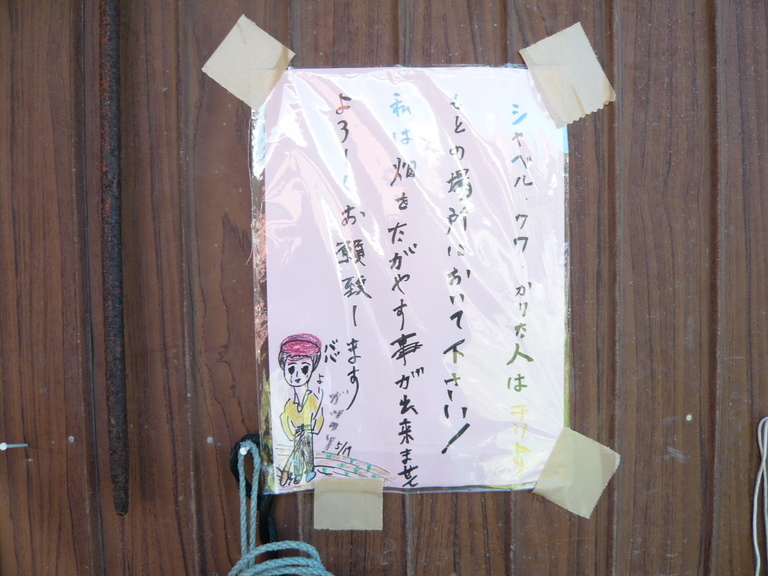 シャベル.クワ.かりた人は
もとの場所において下さい!
私は畑をたがやす事が出来ません
よろしくお願致します
より
ガックリ